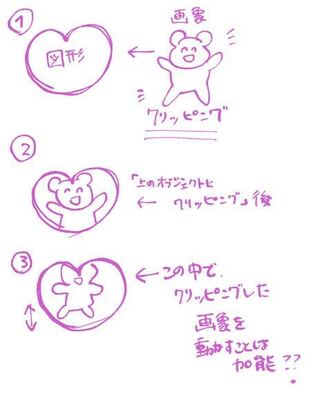 ①
画象
図形
←
クリッピング
②
「上のオブジェクトに
← クリッピング」後
③
← この中で、
クリッピングした
画象を
動かすことは
可能??